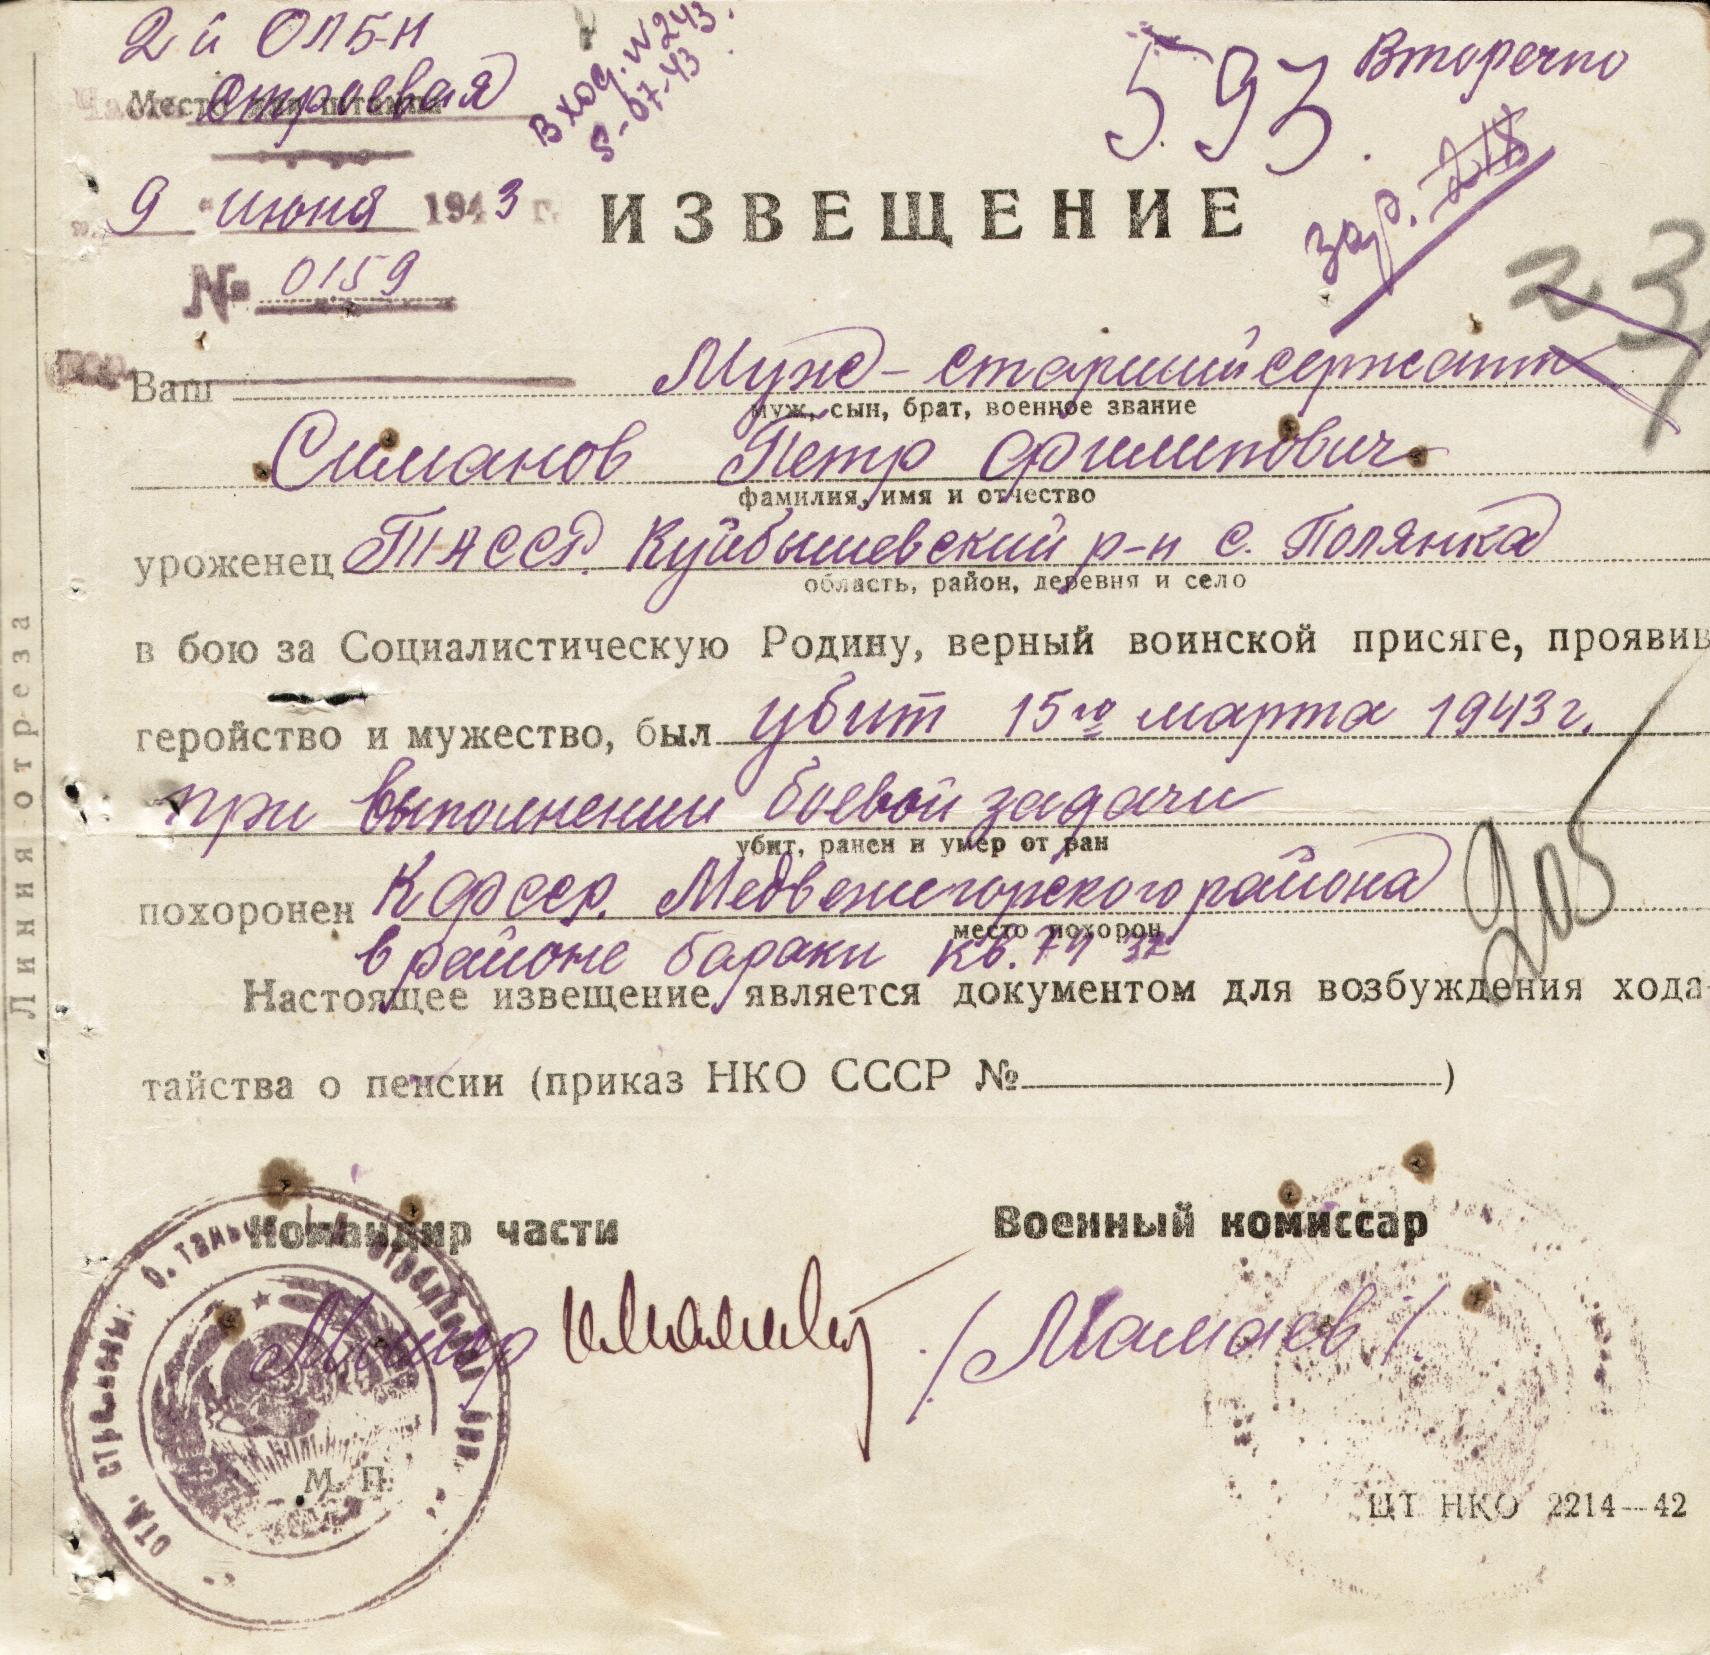 2й ОЛБ-Н
Место для штампа
строевая
Вход. N 243.
5-07-43
593.
Вторечно
"9" июня 1943 г.
ИЗВЕЩЕНИЕ
№ 0159
23
Ваш Муж - старший сержант
муж, сын, брат, военное звание
Симанов Пётр Филипович
фамилия, имя и отчество
уроженец ТАССР. Куйбышевский р-н с. Полянка
область, район, деревня и село
в бою за Социалистическую Родину, верный воинской присяге, проявив
геройство и мужество, был убит 15го марта 1943г.
при выполнении боевой задачи
убит, ранен и умер от ран
205
похоронен КФССР. Медвежигорского района
место похорон
в районе бараки кв.
Настоящее извещение является документом для возбуждения хода-
тайства о пенсии (приказ НКО СССР №)
Командир части
Военный комиссар
Майор
/Мамаев/
М. П.
ЦТ НКО 2214—42
Линия отреза